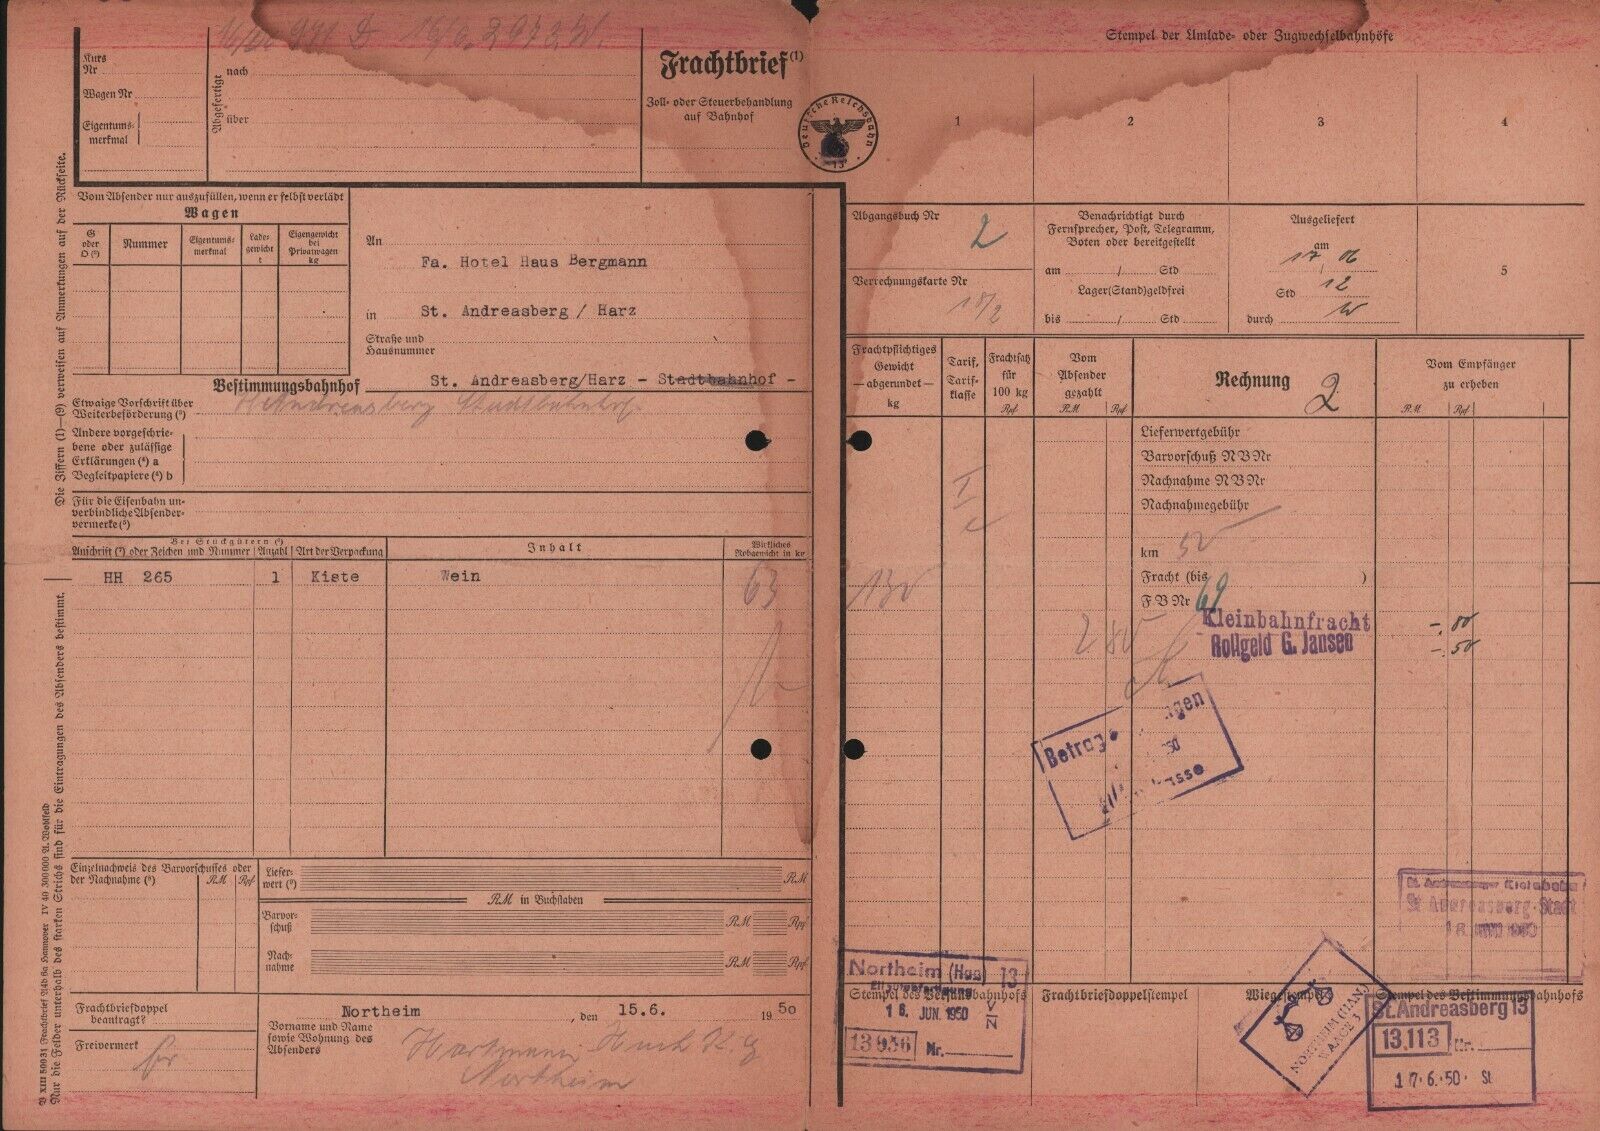 Kurs
Nr
Wagen Nr
Eigentums-
merkmal
Abgefertigt
nach
über
Frachtbrief(1)
Zoll- oder Steuerbehandlung
auf Bahnhof
Deutsche Reichsbahn
13
Stempel der Umlade- oder Zugwechselbahnhöfe
1
2
3
4
5
Die Ziffern (1)—(9) verweisen auf Anmerkungen auf der Rückseite.
Vom Absender nur auszufüllen, wenn er selbst verlädt
Wagen
G
oder
O (2)
Nummer
Eigentums-
merkmal
Lade-
gewicht
t
Eigengewicht
bei
Privatwagen
kg
An
Fa. Hotel Haus Bergmann
in
St. Andreasberg / Harz
Straße und
Hausnummer
Bestimmungsbahnhof
St. Andreasberg/Harz - Stadtbahnhof -
Etwaige Vorschrift über
Weiterbeförderung (3)
St Andreasberg Stadtbahnhof
Andere vorgeschrie-
bene oder zulässige
Erklärungen (4) a
Begleitpapiere (4) b
Für die Eisenbahn un-
verbindliche Absender-
vermerke (5)
Bei Stückgütern (6)
Anschrift (7) oder Zeichen und Nummer
Anzahl
Art der Verpackung
Inhalt
Wirkliches
Rohgewicht in kg
HH 265
1
Kiste
Wein
63
Einzelnachweis des Barvorschusses oder
der Nachnahme (8)
RM
Rpf
Liefer-
wert (9)
RM
RM in Buchstaben
Barvor-
schuß
RM
Rpf
Nach-
nahme
RM
Rpf
Frachtbriefdoppel
beantragt?
Freivermerk
Northeim, den 15.6. 1950
Vorname und Name
sowie Wohnung des
Absenders
Northeim
B XIII 50031 Frachtbrief A4b 6a Hannover IV 40 300000 A. Wohlfeld
Nur die Felder unterhalb des starken Strichs sind für die Eintragungen des Absenders bestimmt,
Abgangsbuch Nr
2
Verrechnungskarte Nr
18/2
Benachrichtigt durch
Fernsprecher, Post, Telegramm,
Boten oder bereitgestellt
am / Std
Lager(Stand)geldfrei
bis / Std
Ausgeliefert
am
17 06
Std 12
durch
Frachtpflichtiges
Gewicht
— abgerundet —
kg
Tarif,
Tarif-
klasse
Frachtsatz
für
100 kg
Rpf
Vom
Absender
gezahlt
RM
Rpf
Rechnung 2
Vom Empfänger
zu erheben
RM
Rpf
Lieferwertgebühr
Barvorschuß NB Nr
Nachnahme NB Nr
Nachnahmegebühr
km
Fracht (bis )
FB Nr 69
Kleinbahnfracht
Rollgeld G. Jansen
-.50
St Andreasberg-Stadt
Northeim (Han) 13
16. JUN. 1950
13036 Nr.
Stempel des Versandbahnhofs
Frachtbriefdoppelstempel
Wiegestempel
NORTHEIM (HAN)
WAAGE 3
Stempel des Bestimmungsbahnhofs
St. Andreasberg 13
13,113 Nr.
17.6.50. St